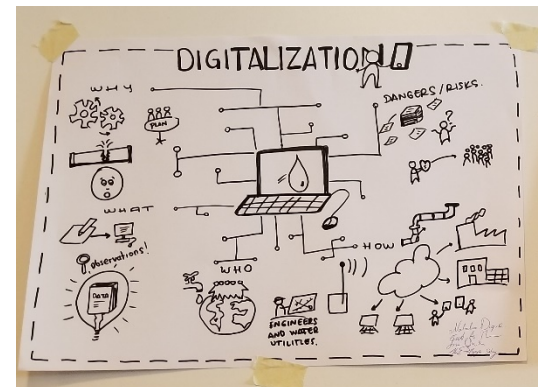 DIGITALIZATION
WHY
PLAN
DANGERS/RISKS.
WHAT
Observations!
DATA
WHO
HOW
ENGINEERS
AND WATER
UTILITIES.